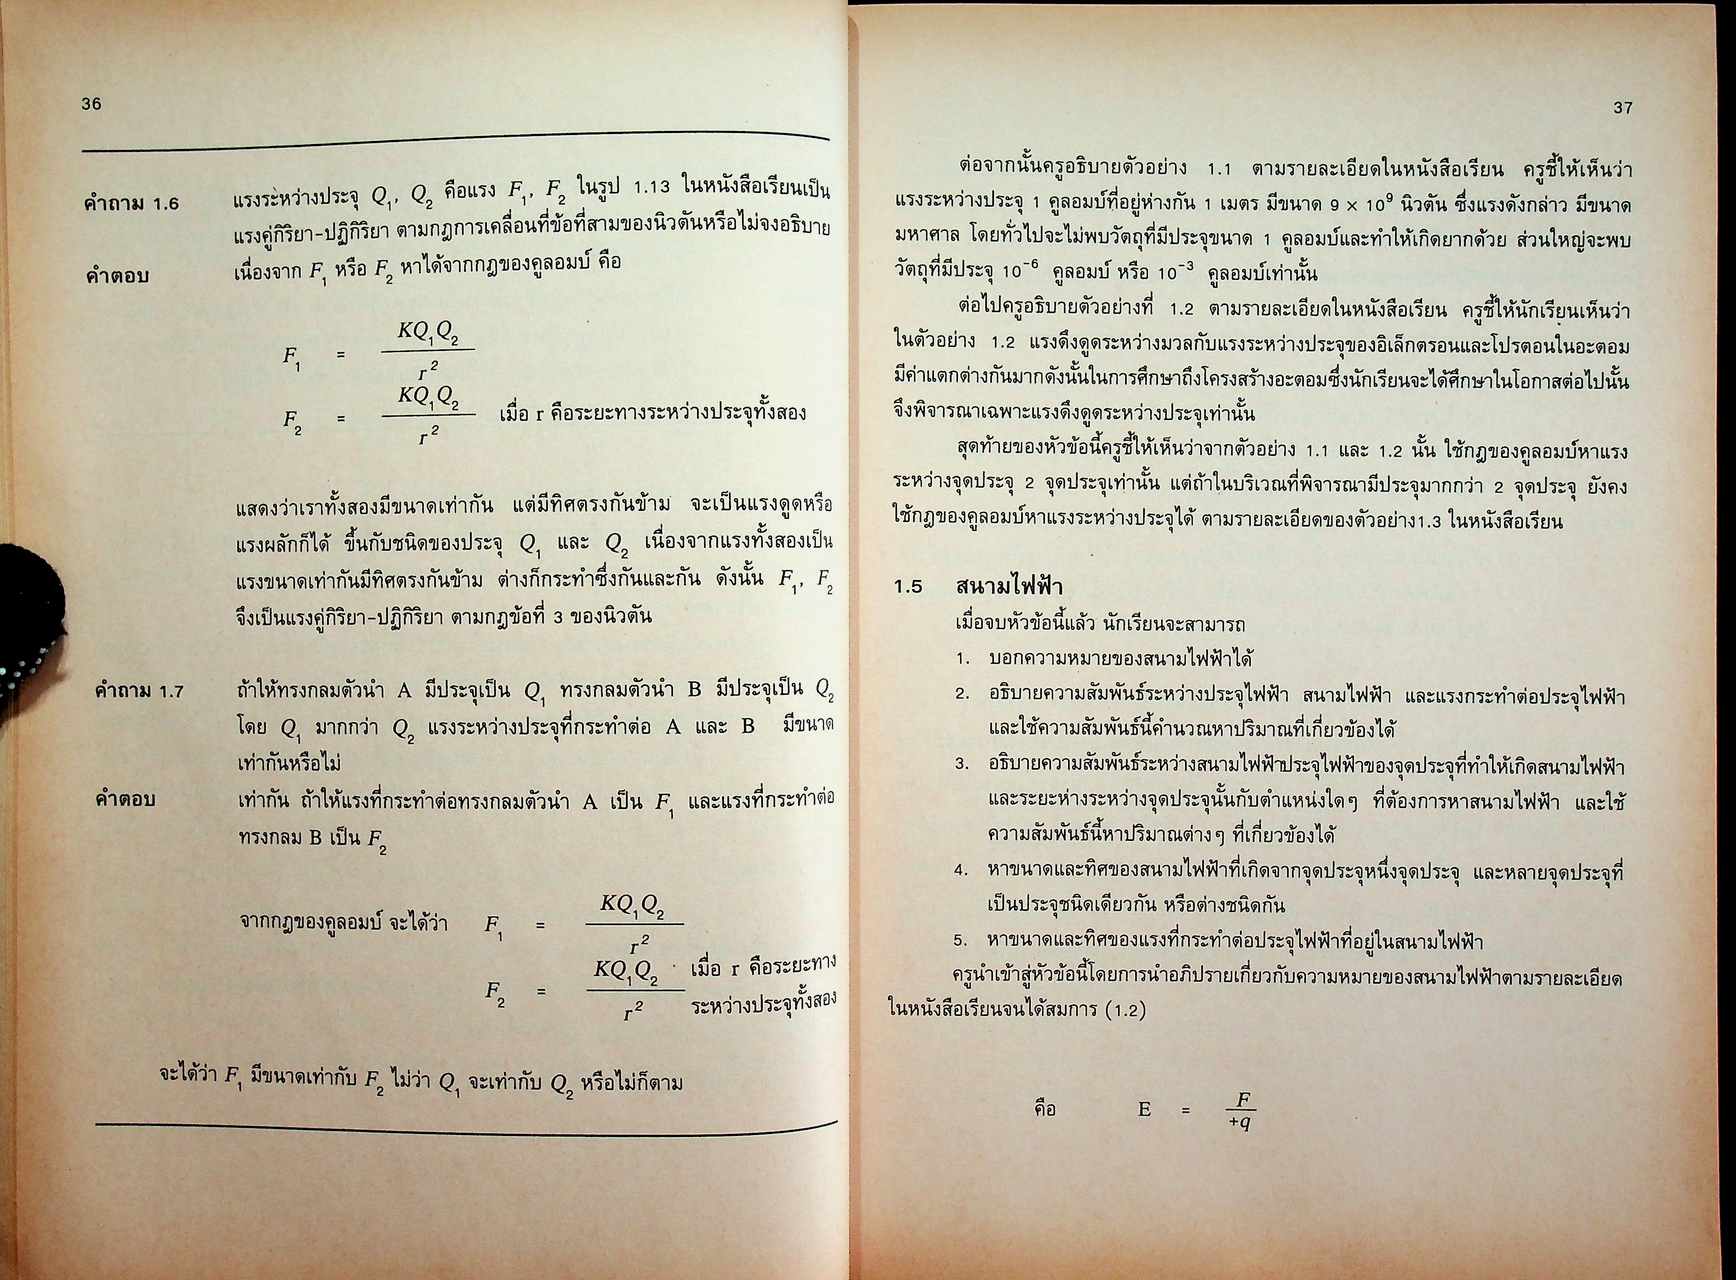 36
คำถาม 1.6 แรงระหว่างประจุ Q₁, Q₂ คือแรง F₁, F₂ ในรูป 1.13 ในหนังสือเรียนเป็น
แรงคู่กิริยา-ปฏิกิริยา ตามกฎการเคลื่อนที่ข้อที่สามของนิวตันหรือไม่จงอธิบาย
คำตอบ เนื่องจาก F₁ หรือ F₂ หาได้จากกฎของคูลอมบ์ คือ
F₁ = KQ₁Q₂ / r²
F₂ = KQ₁Q₂ / r² เมื่อ r คือระยะทางระหว่างประจุทั้งสอง
แสดงว่าเราทั้งสองมีขนาดเท่ากัน แต่มีทิศตรงกันข้าม จะเป็นแรงดูดหรือ
แรงผลักก็ได้ ขึ้นกับชนิดของประจุ Q₁ และ Q₂ เนื่องจากแรงทั้งสองเป็น
แรงขนาดเท่ากันมีทิศตรงกันข้าม ต่างก็กระทำซึ่งกันและกัน ดังนั้น F₁, F₂
จึงเป็นแรงคู่กิริยา-ปฏิกิริยา ตามกฎข้อที่ 3 ของนิวตัน
คำถาม 1.7 ถ้าให้ทรงกลมตัวนำ A มีประจุเป็น Q₁ ทรงกลมตัวนำ B มีประจุเป็น Q₂
โดย Q₁ มากกว่า Q₂ แรงระหว่างประจุที่กระทำต่อ A และ B มีขนาด
เท่ากันหรือไม่
คำตอบ เท่ากัน ถ้าให้แรงที่กระทำต่อทรงกลมตัวนำ A เป็น F₁ และแรงที่กระทำต่อ
ทรงกลม B เป็น F₂
จากกฎของคูลอมบ์ จะได้ว่า F₁ = KQ₁Q₂ / r²
F₂ = KQ₁Q₂ / r² เมื่อ r คือระยะทาง
ระหว่างประจุทั้งสอง
จะได้ว่า F₁ มีขนาดเท่ากับ F₂ ไม่ว่า Q₁ จะเท่ากับ Q₂ หรือไม่ก็ตาม
37
ต่อจากนั้นครูอธิบายตัวอย่าง 1.1 ตามรายละเอียดในหนังสือเรียน ครูชี้ให้เห็นว่า
แรงระหว่างประจุ 1 คูลอมบ์ที่อยู่ห่างกัน 1 เมตร มีขนาด 9 × 10⁹ นิวตัน ซึ่งแรงดังกล่าว มีขนาด
มหาศาล โดยทั่วไปจะไม่พบวัตถุที่มีประจุขนาด 1 คูลอมบ์และทำให้เกิดยากด้วย ส่วนใหญ่จะพบ
วัตถุที่มีประจุ 10⁻⁶ คูลอมบ์ หรือ 10⁻³ คูลอมบ์เท่านั้น
ต่อไปครูอธิบายตัวอย่างที่ 1.2 ตามรายละเอียดในหนังสือเรียน ครูชี้ให้นักเรียนเห็นว่า
ในตัวอย่าง 1.2 แรงดึงดูดระหว่างมวลกับแรงระหว่างประจุของอิเล็กตรอนและโปรตอนในอะตอม
มีค่าแตกต่างกันมากดังนั้นในการศึกษาถึงโครงสร้างอะตอมซึ่งนักเรียนจะได้ศึกษาในโอกาสต่อไปนั้น
จึงพิจารณาเฉพาะแรงดึงดูดระหว่างประจุเท่านั้น
สุดท้ายของหัวข้อนี้ครูชี้ให้เห็นว่าจากตัวอย่าง 1.1 และ 1.2 นั้น ใช้กฎของคูลอมบ์หาแรง
ระหว่างจุดประจุ 2 จุดประจุเท่านั้น แต่ถ้าในบริเวณที่พิจารณามีประจุมากกว่า 2 จุดประจุ ยังคง
ใช้กฎของคูลอมบ์หาแรงระหว่างประจุได้ ตามรายละเอียดของตัวอย่าง1.3 ในหนังสือเรียน
1.5 สนามไฟฟ้า
เมื่อจบหัวข้อนี้แล้ว นักเรียนจะสามารถ
1. บอกความหมายของสนามไฟฟ้าได้
2. อธิบายความสัมพันธ์ระหว่างประจุไฟฟ้า สนามไฟฟ้า และแรงกระทำต่อประจุไฟฟ้า
และใช้ความสัมพันธ์นี้คำนวณหาปริมาณที่เกี่ยวข้องได้
3. อธิบายความสัมพันธ์ระหว่างสนามไฟฟ้าประจุไฟฟ้าของจุดประจุที่ทำให้เกิดสนามไฟฟ้า
และระยะห่างระหว่างจุดประจุนั้นกับตำแหน่งใดๆ ที่ต้องการหาสนามไฟฟ้า และใช้
ความสัมพันธ์นี้หาปริมาณต่างๆ ที่เกี่ยวข้องได้
4. หาขนาดและทิศของสนามไฟฟ้าที่เกิดจากจุดประจุหนึ่งจุดประจุ และหลายจุดประจุที่
เป็นประจุชนิดเดียวกัน หรือต่างชนิดกัน
5. หาขนาดและทิศของแรงที่กระทำต่อประจุไฟฟ้าที่อยู่ในสนามไฟฟ้า
ครูนำเข้าสู่หัวข้อนี้โดยการนำอภิปรายเกี่ยวกับความหมายของสนามไฟฟ้าตามรายละเอียด
ในหนังสือเรียนจนได้สมการ (1.2)
คือ E = F / +q